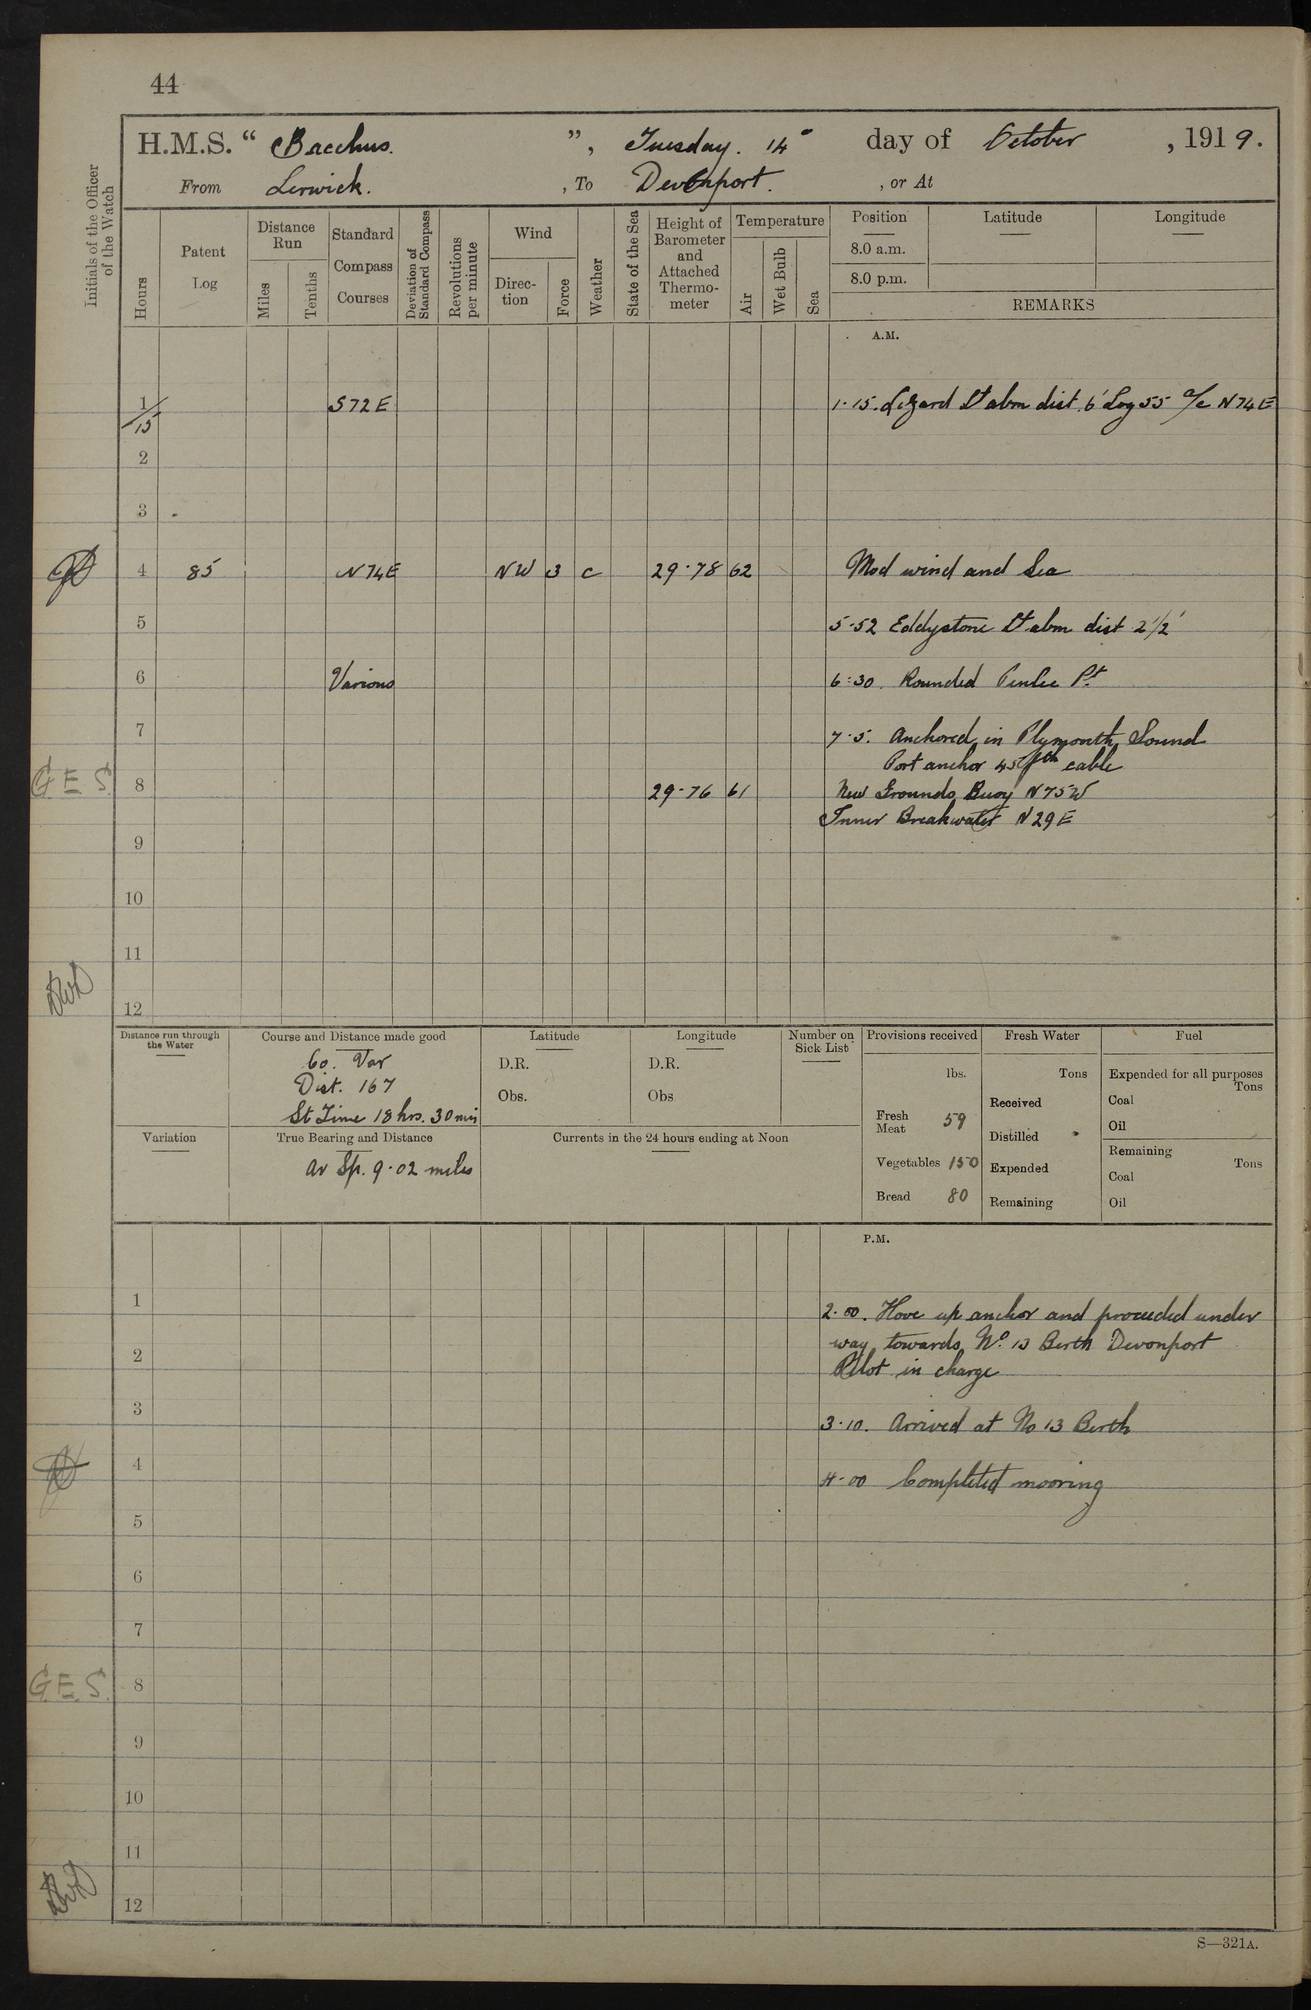 44
H.M.S. “ Bacchus. ”, Tuesday. 14 day of October , 1919.
From Lerwick. , To Devonport. , or At
Initials of the Officer of the Watch
Hours
Patent Log
Distance Run
Miles
Tenths
Standard Compass Courses
Deviation of Standard Compass
Revolutions per minute
Wind
Direc-tion
Force
Weather
State of the Sea
Height of Barometer and Attached Thermo-meter
Temperature
Air
Wet Bulb
Sea
Position
Latitude
Longitude
8.0 a.m.
8.0 p.m.
REMARKS
A.M.
1/15 S72E 1·15. Lizard Lt abm dist. 6' Log 55 a/c N74E
2
3
4 85 N74E NW 3 c 29·78 62 Mod wind and Sea
5 5·52 Eddystone Lt abm dist 2½'
6 Various 6:30. Rounded Penlee Pt.
7 7·5. Anchored in Plymouth Sound
Port anchor 45 fth cable
G.E.S. 8 29·76 61 New Grounds Buoy N75W
Inner Breakwater N29E
9
10
11
12
Distance run through the Water
Course and Distance made good
Co. Var
Dist. 167
St Time 18 hrs. 30 min
Latitude
D.R.
Obs.
Longitude
D.R.
Obs
Number on Sick List
Provisions received
lbs.
Fresh Meat 59
Vegetables 150
Bread 80
Fresh Water
Tons
Received
Distilled
Expended
Remaining
Fuel
Expended for all purposes
Tons
Coal
Oil
Remaining
Tons
Coal
Oil
Variation
True Bearing and Distance
Av Sp. 9·02 miles
Currents in the 24 hours ending at Noon
P.M.
1 2·00. Hove up anchor and proceeded under
2 way towards No. 13 Berth Devonport
Pilot in charge
3 3·10. Arrived at No 13 Berth
4 4·00 Completed mooring
5
6
7
G.E.S. 8
9
10
11
12
S—321A.